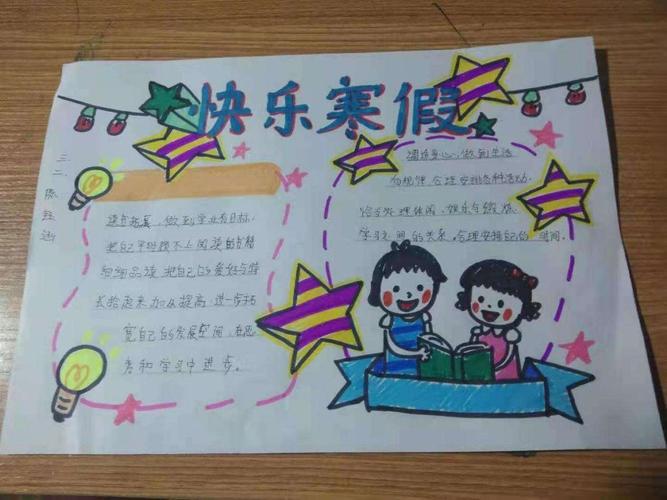 快乐寒假
三二 陈
读与拓展,做到学业有目标,
把自己平时顾不上阅读的书籍
细细品读,把自己的爱好与特
长拾起来加以提高,进一步拓
宽自己的发展空间,在思
考和学习中进步。
调适身心,做到生活
有规律,合理安排各种活动,
恰当处理休闲、娱乐与锻炼、
学习之间的关系,合理安排自己的时间。